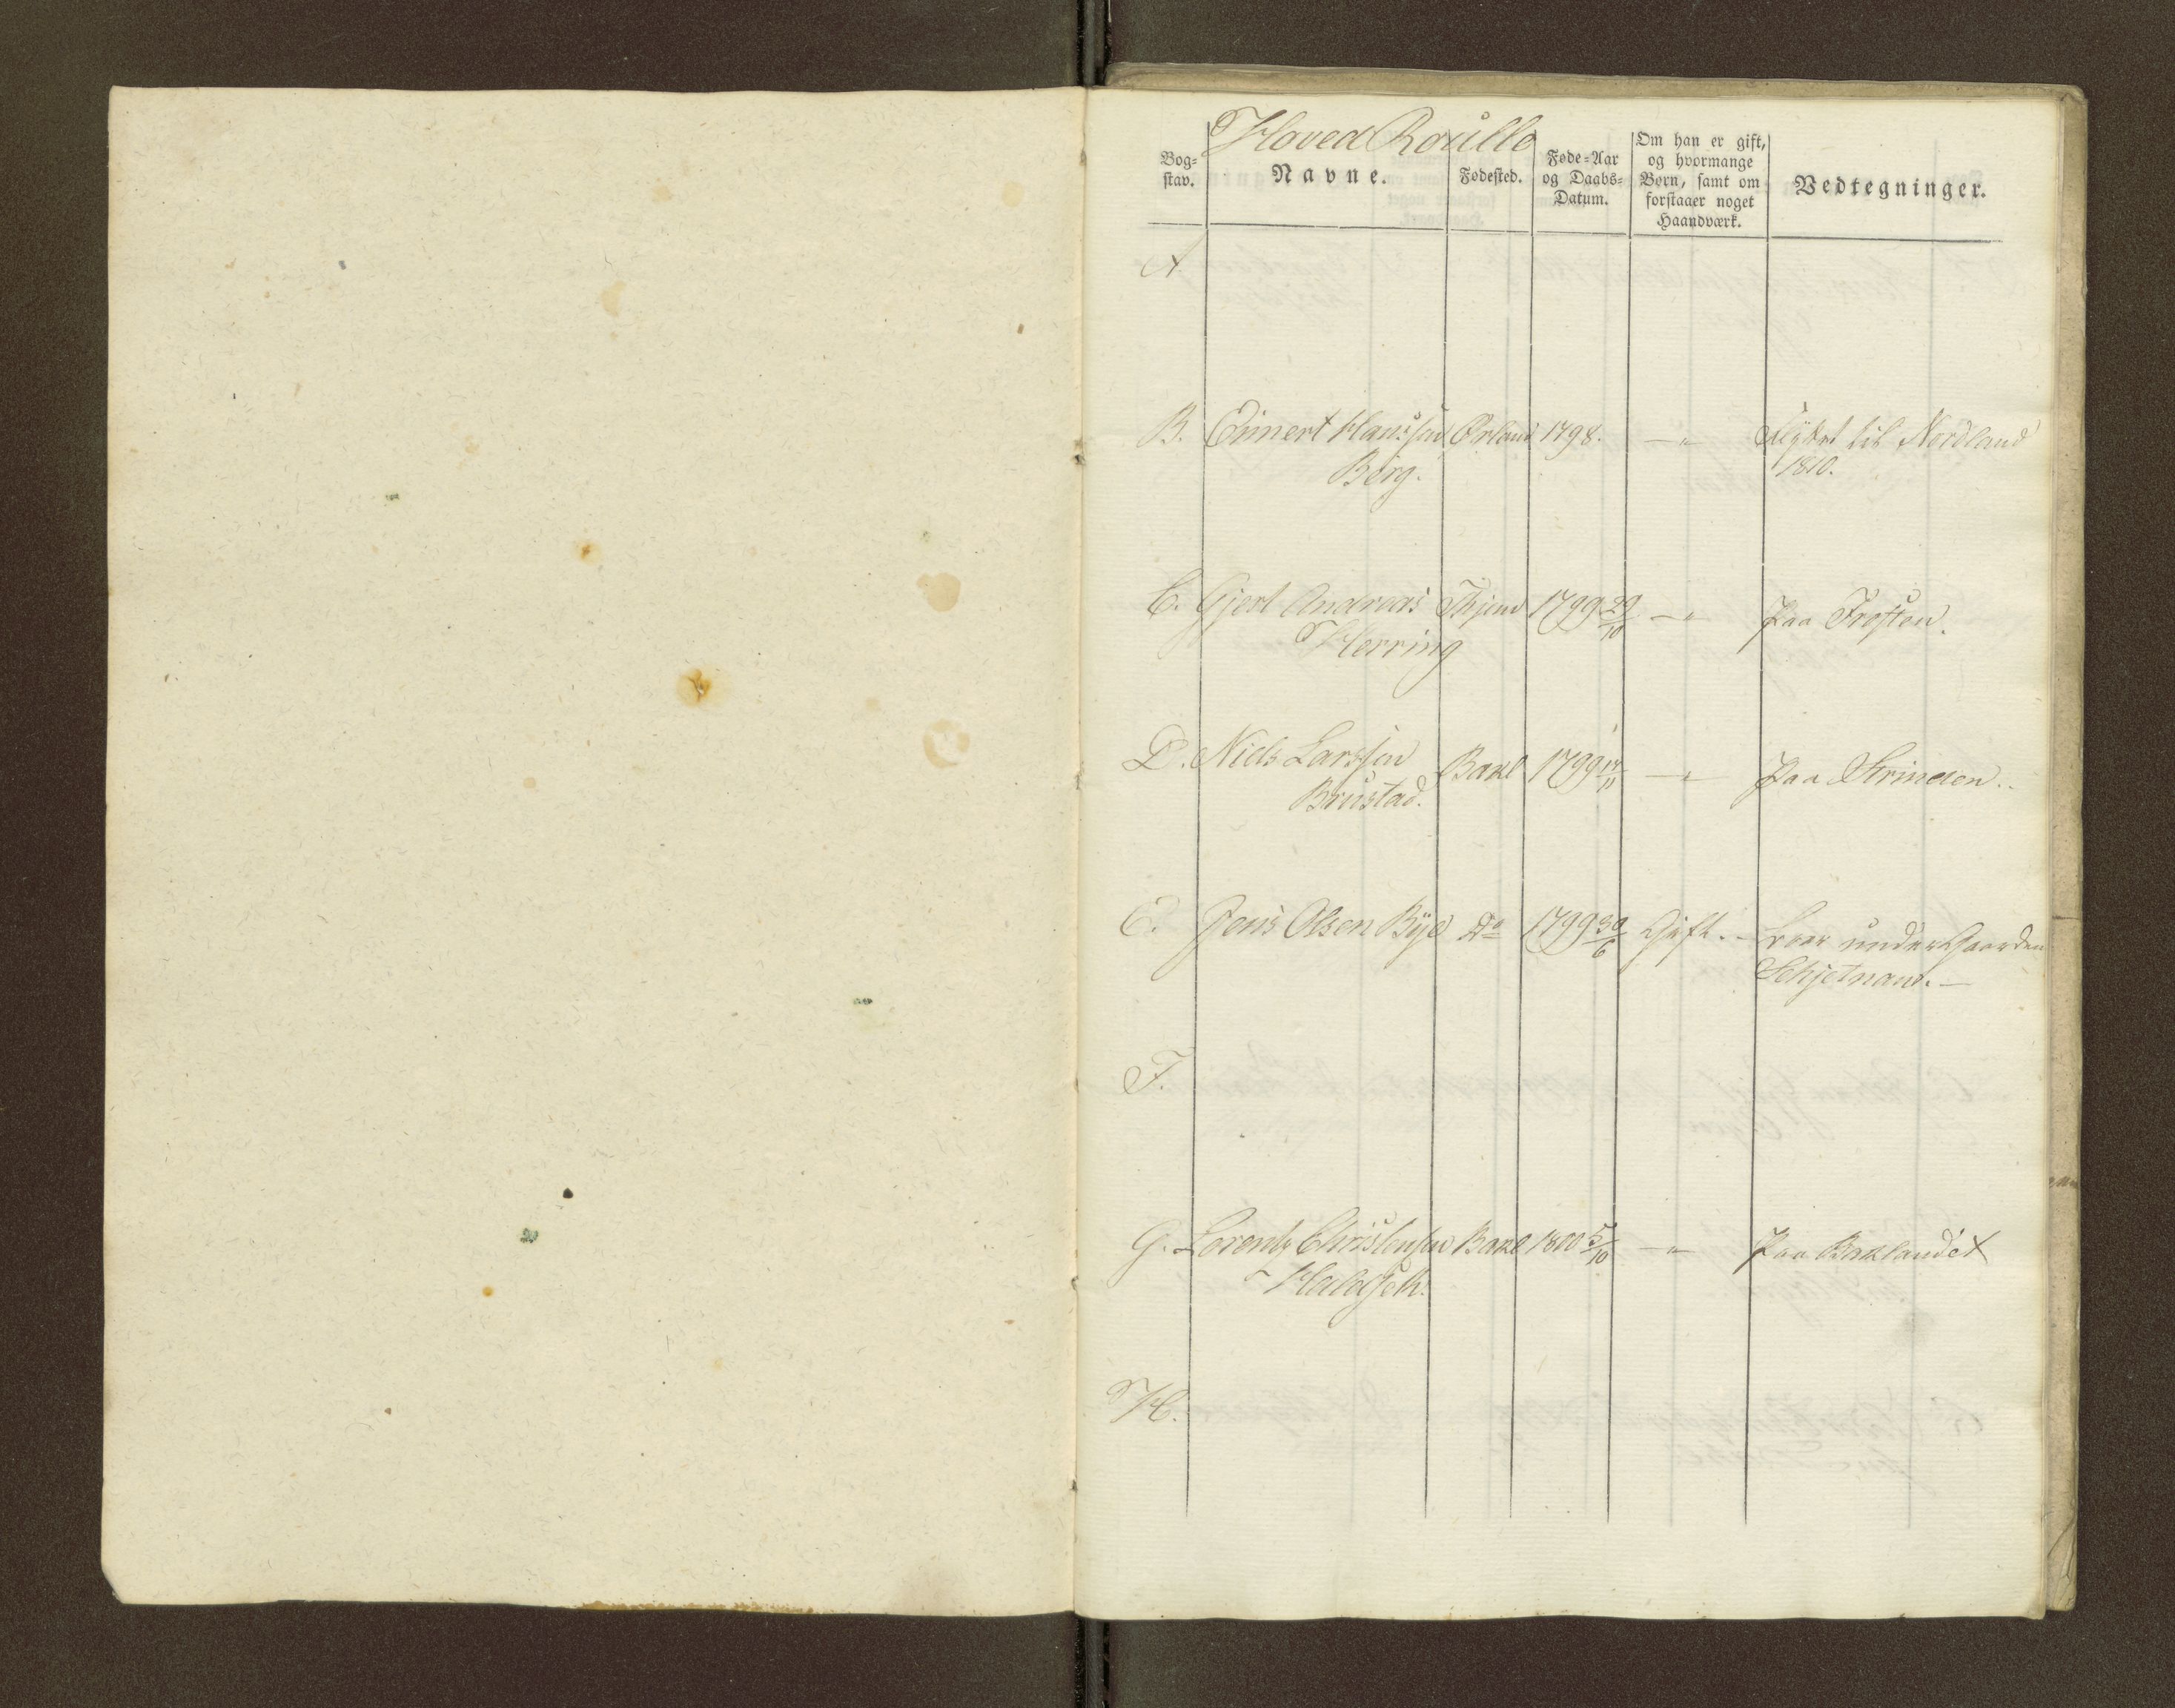 Hoved Roulle
Bog-
stav.
Navne.
Fødested.
Føde-Aar
og Daabs-
Datum.
Om han er gift,
og hvormange
Børn, samt om
forstaaer noget
Haandværk.
Vedtegninger.
A
B. Einert Hanssen Ørland 1798. — " Flyttet til Nordland
Berg. 1810.
C. Gjert Andreas Thjem 1799 29/10 — " Paa Frosten.
Herring
D. Niels Larssen Bakl 1799 17/11 — " Paa Strinden.
Brustad.
E. Jens Olsen Bye Do 1799 30/6 Gift. - Boer under Gaarden
Schjetnan. —
F.
G. Lorentz Christensen Bakl 1800 5/10 — " Paa Baklandet
Haldseth.
H.